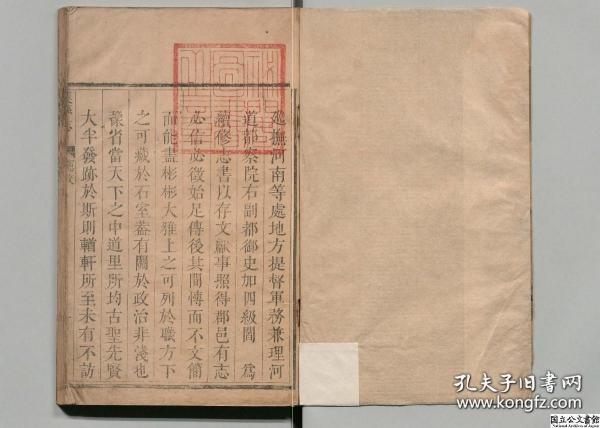 巡撫河南等處地方提督軍務兼理河
道都察院右副都御史加四級閻　為
續修志書以存文獻事照得郡邑有志
必信必徵始足傳後其間博而不文簡
而能盡彬彬大雅上之可列於職方下
之可藏於石室葢有關於政治非淺也
豫省當天下之中道里所均古聖先賢
大半發跡於斯則輶軒所至未有不訪
孔夫子旧书网
www.kongfz.com
国立公文書館
National Archives of Japan